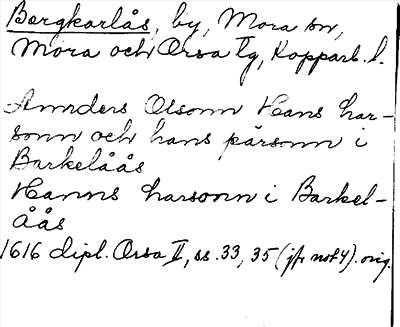 Bergkarlås, by, Mora sn,
Mora och Orsa tg, Kopparb. l.
Annders Olsonn Hans har-
sonn och hans pårsonn i
Barkelåås
Hanns harsonn i Barkel-
åås
1616 dipl. Orsa II, ss. 33, 35 (jfr not 4). orig.